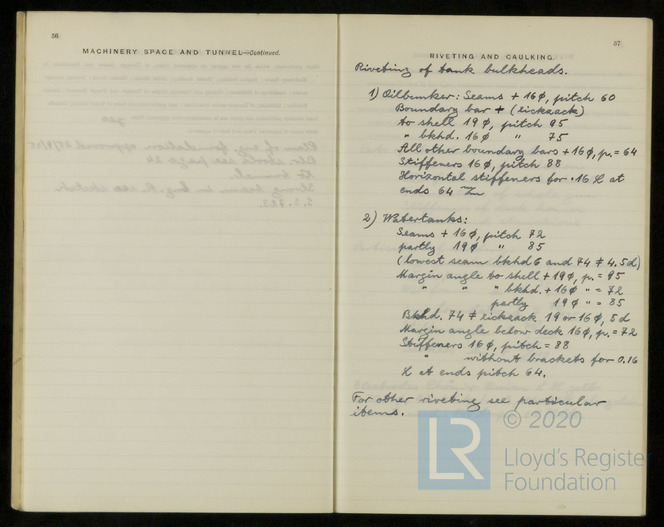 56
MACHINERY SPACE AND TUNNEL—Continued.
57
RIVETING AND CAULKING.
Riveting of tank bulkheads.
1) Oilbunker: Seams ‡ 16 ø, pitch 60
Boundary bar ‡ (zickzack)
to shell 19 ø, pitch 95
" bkhd. 16 ø " 75
All other boundary bars ‡ 16 ø, p. = 64
Stiffeners 16 ø, pitch 88
Horizontal stiffeners for .16 H at
ends 64 m/m
2) Watertanks:
Seams ‡ 16 ø, pitch 72
partly 19 ø " 85
(lowest seam bkhd 6 and 74 ‡ 4.5d)
Margin angle to shell ‡ 19 ø, p. = 95
" " " bkhd. ‡ 16 ø " = 72
partly 19 ø " = 85
Bkhd. 74 ‡ zickzack 19 or 16 ø, 5d
Margin angle below deck 16 ø, p. = 72
Stiffeners 16 ø, pitch = 88
" without brackets for 0.16
H at ends pitch 64.
For other riveting see particular
items.
LR
© 2020
Lloyd's Register
Foundation